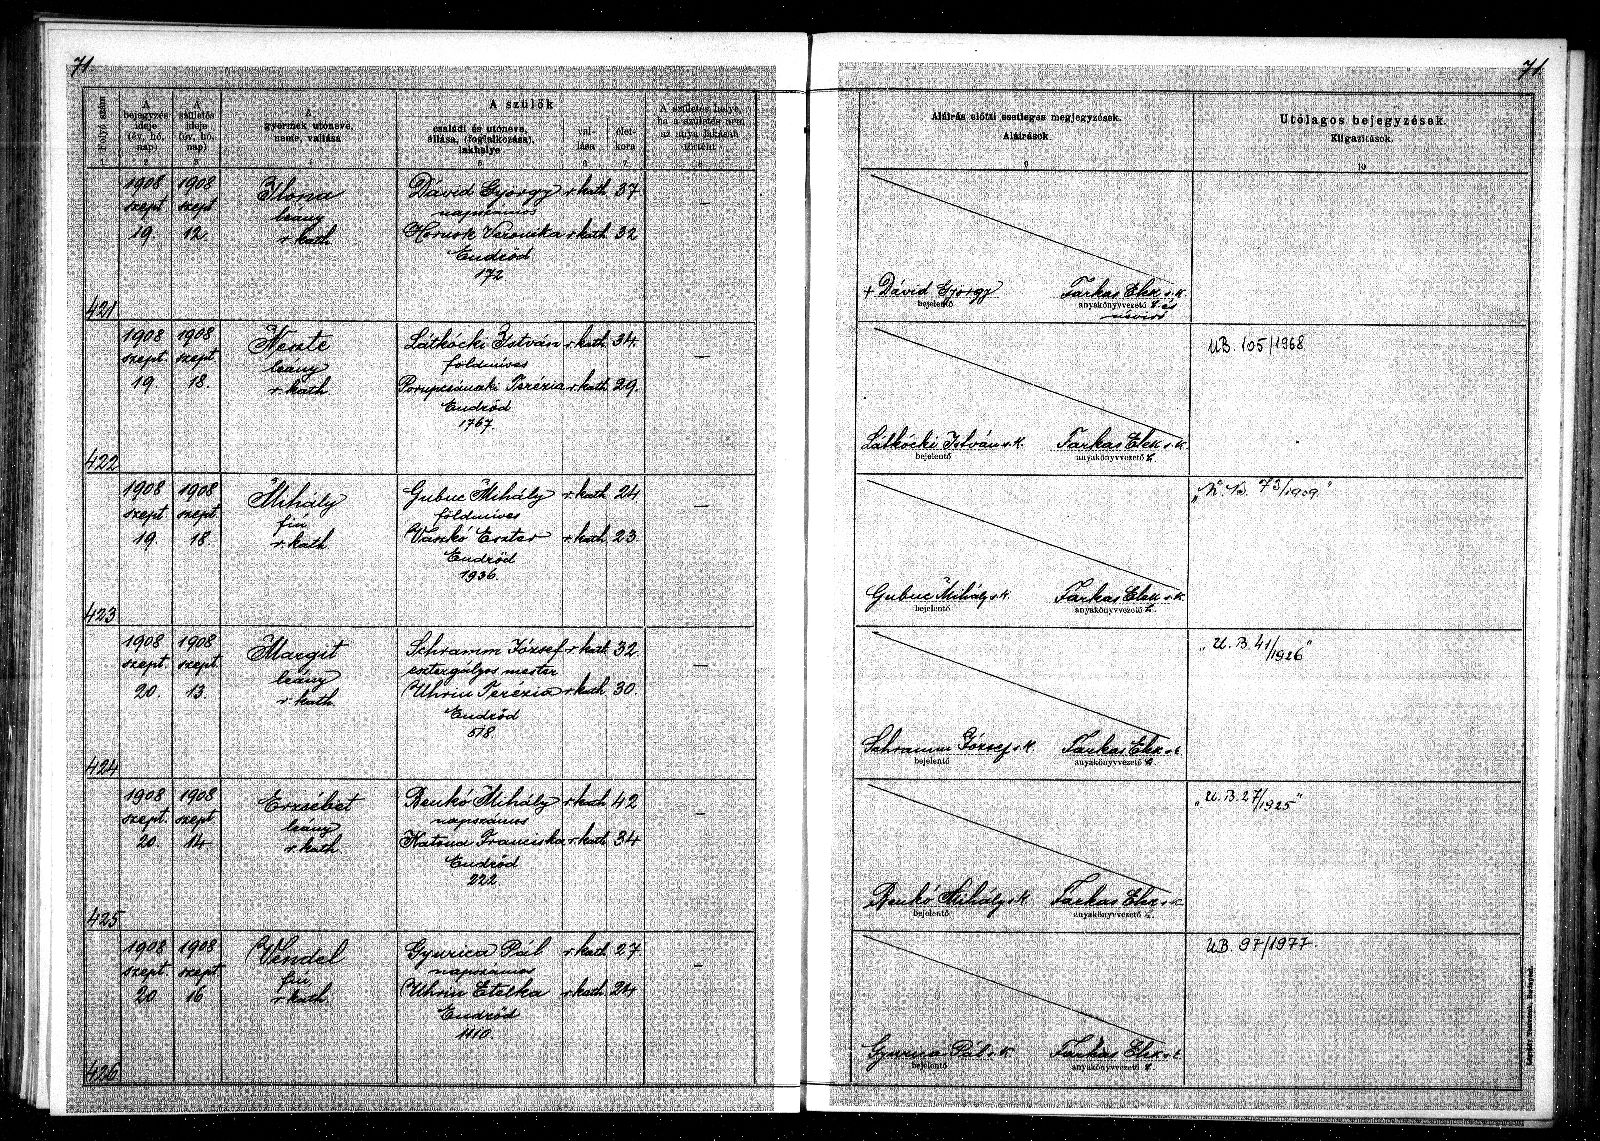 71.
71.
Folyó szám
A bejegyzés ideje (év, hó, nap)
A születés ideje (év, hó, nap)
A gyermek utóneve, neme, vallása
A szülők
családi és utóneve, állása, (foglalkozása), lakhelye
vallása
életkora
A születés helye, ha a születés nem az anya lakásán történt
Aláírás előtti esetleges megjegyzések.
Aláírások
Utólagos bejegyzések.
Kiigazítások.
1 2 3 4 5 6 7 8 9 10
421
1908 szept 19.
1908 szept 12.
Ilona
leány
r. kath
Dávid György r. kath. 37
napszámos
Hornok Veronika r. kath 32
Endrőd
172
—
+ Dávid György
bejelentő
Farkas Elek s. k.
anyakönyvvezető h. és
névíró
422
1908 szept. 19.
1908 szept. 18.
Eszte
leány
r. kath
Látkócki István r. kath. 34.
földmives
Porupcsánszki Terézia r. kath 29.
Endrőd
1767.
—
Látkócki István s. k.
bejelentő
Farkas Elek s. k.
anyakönyvvezető h.
UB. 105/1968
423
1908 szept 19.
1908 szept. 18.
Mihály
fiú
r. kath
Gubuc Mihály r. kath 24
földmives
Vaszkó Eszter r. kath 23.
Endrőd
1936.
—
Gubuc Mihály s. k.
bejelentő
Farkas Elek s. k.
anyakönyvvezető h.
73/1909."
424
1908 szept. 20.
1908 szept. 13.
Margit
leány
r. kath.
Schramm József r. kath 32.
esztergályos mester
Uhrin Terézia r. kath 30.
Endrőd
518.
—
Schramm József s. k.
bejelentő
Farkas Elek s. k.
anyakönyvvezető h.
„U. B. 41/1926"
425
1908 szept. 20.
1908 szept. 14
Erzsébet
leány
r. kath.
Benkó Mihály r. kath 42
napszámos
Katona Franciska r. kath 34
Endrőd
222
—
Benkó Mihály s. k.
bejelentő
Farkas Elek s. k.
anyakönyvvezető h.
„U. B. 27/1925"
426
1908 szept. 20
1908 szept. 16
Vendel
fiú
r. kath.
Gyurica Pál r. kath 27
napszámos
Uhrin Etelka r. kath 24
Endrőd
1110.
—
Gyurica Pál s. k.
bejelentő
Farkas Elek s. k.
anyakönyvvezető h.
UB. 97/1977